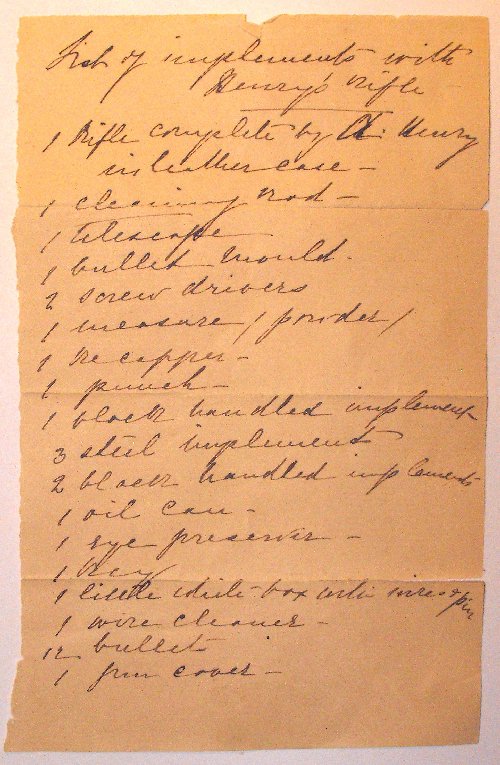 List of implements with
Henry's rifle
1 Rifle complete by A. Henry
in leather case -
1 cleaning rod -
1 telescope
1 bullet mould.
2 screw drivers
1 measure / powder /
1 Re capper -
1 punch -
1 black handled implement
3 steel implement
2 black handled implements
1 oil can -
1 eye preserver -
1 key
1 little white box with wires & pin
1 wire cleaner -
12 bullets
1 gun cover -